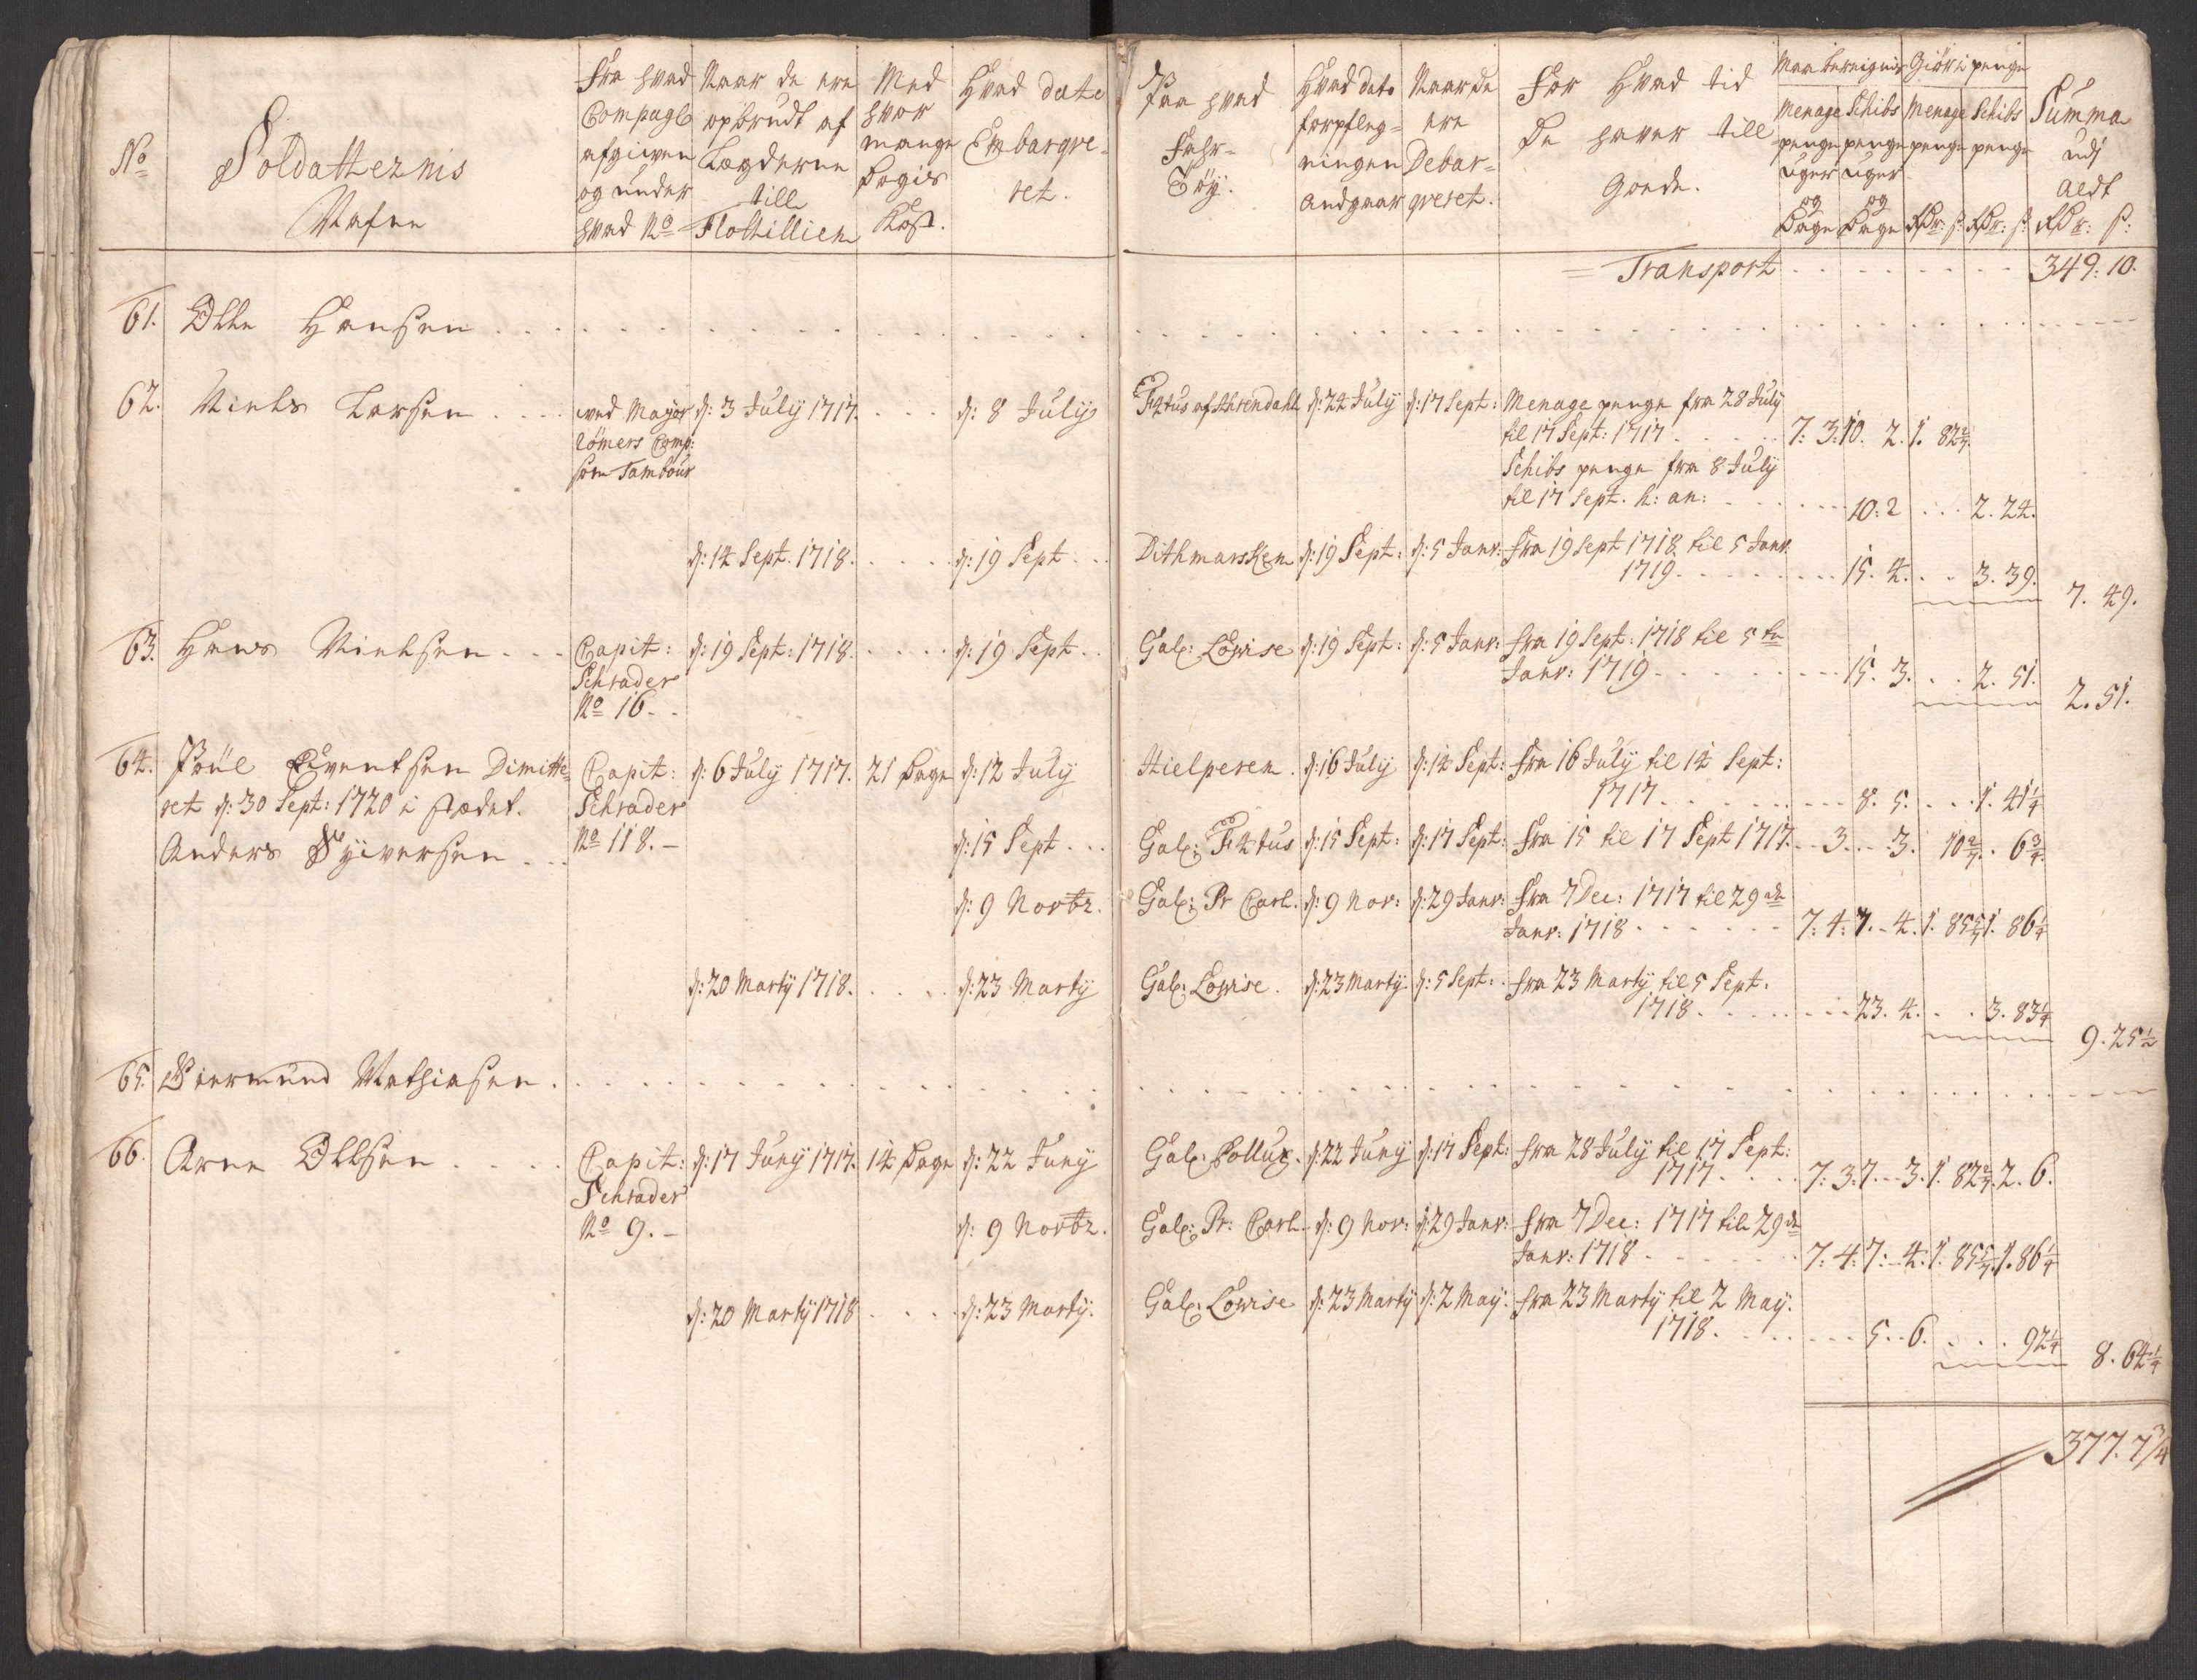 No
Soldatternis
Nafne
Fra hvad
Compagl
afgiwen
og under
hvad No
Naar de ere
opbrudt af
Lægderne
till
Flottillien
Med
hvor
mange
Dagis
Kost.
Hvad dato
Embarqve-
ret.
Paa hvad
Fahr-
Töy.
Hvad dato
forpfleg-
ningen
andgaar
Naar De
ere
Debar-
qveret.
For Hvad tid
De haver till
Gode.
Maa bereignis
Giör i penge
Menage
penge
uger
og
Dage
Schibs
penge
uger
og
Dage
Menage
penge
Rdr: ß
Schibs
penge
Rdr: ß
Summa
udj
aldt
Rdr: ß:
Transport 349: 10.
61. Olle Hansen
62. Niels Larsen
ved Major
Römers Comp:
som Tambour
d: 3 July 1717.
d: 8 July
Fætus af Ahrendahl d: 24 July d: 17 Sept: Menage penge fra 28 July
til 17 Sept: 1717 7: 3: 10. 2. 1. 82 2/7
Schibs penge fra 8 July
til 17 Sept. h: an: 10: 2 2. 24.
d: 14 Sept. 1718. d: 19 Sept
Dithmarsken d: 19 Sept: d: 5 Janv: fra 19 Sept 1718 til 5 Janv.
1719 15. 4. 3. 39.
7. 49.
63. Hans Nielsen
Capit:
Schrader
No 16.
d: 19 Sept: 1718. d: 19 Sept
Gal: Lowise d: 19 Sept: d: 5 Janv: fra 19 Sept: 1718 til 5 te
Janv: 1719 15. 3. 2. 51.
2. 51.
64. Poul Eventsen Dimitte-
ret d: 30 Sept: 1720 i stædet.
Anders Syiversen
Capit:
Schrader
No 118.
d: 6 July 1717. 21 Dage d: 12 July
Hielperen. d: 16 July d: 14 Sept: fra 16 July til 14 Sept:
1717 8. 5. 1. 41 1/4
d: 15 Sept
Gal: Fætus d: 15 Sept: d: 17 Sept: fra 15 til 17 Sept 1717. 3 3. 10 2/7. 6 3/4.
d: 9 Novbr.
Gal: Pr Carl. d: 9 Nov: d: 29 Janv: fra 7 Dec: 1717 til 29 de
Janv: 1718 7: 4: 7. 4. 1. 85 5/7 1. 86 1/4
d: 20 Marty 1718. d: 23 Marty
Gal: Lowise. d: 23 Marty d: 5 Sept: fra 23 Marty til 5 Sept.
1718 23. 4. 3. 83 1/4
9. 25 1/2
65. Biermund Mathiesen.
66. Arne Ollsen
Capit:
Schrader
No 9.
d: 17 Juny 1717. 14 Dage d: 22 Juny
Gal: Pollux. d: 22 Juny d: 17 Sept: fra 28 July til 17 Sept:
1717 7: 3: 7. 3. 1. 82 2/7. 2. 6.
d: 9 Novbr.
Gal: Pr: Carl. d: 9 Nov: d: 29 Janv: fra 7 Dec: 1717 til 29 de
Janv: 1718 7: 4: 7: 4. 1. 85 5/7. 1. 86 1/4
d: 20 Marty 1718 d: 23 Marty.
Gal: Lowise d: 23 Marty d: 2 May: fra 23 Marty til 2 May.
1718. 5. 6. 92 1/4
8. 64 1/4
377. 7 3/4